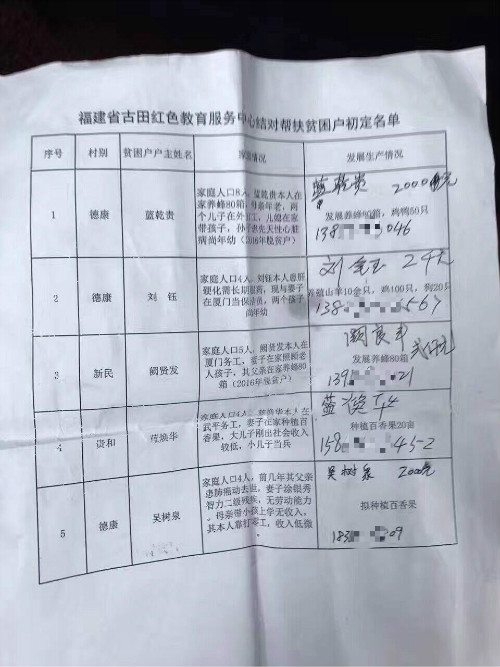 福建省古田红色教育服务中心结对帮扶贫困户初定名单
序号 村别 贫困户户主姓名 家庭情况 发展生产情况
1 德康 蓝乾贵
家庭人口8人，蓝乾贵本人在
家养蜂80箱，母亲年老，两
个儿子在外务工，儿媳在家
带孩子，孙子患先天性心脏
病尚年幼（2016年脱贫户）
蓝乾贵 2000元
发展养蜂80箱，鸡鸭50只
138 3046
2 德康 刘钰
家庭人口4人，刘钰本人患肝
硬化需长期服药，现与妻子
在厦门当保洁员，两个孩子
尚年幼
刘钰 2千元
养殖山羊10余只，鸡100只，狗20只
138 567
3 新民 阙贤发
家庭人口5人，阙贤发本人在
厦门务工，妻子在家照顾老
人孩子，其父亲在家养蜂80
箱（2016年脱贫户）
贰仟元
发展养蜂80箱
139 21
4 贤和 焕华
家庭人口4人，本人在
武平务工，妻子在家种植百
香果，大儿子刚出社会收入
较低，小儿子当兵
种植百香果20亩
158 452
5 德康 吴树泉
家庭人口4人，前几年其父亲
患肺癌动去世，妻子涂银秀
智力二级残疾，无劳动能力
，母亲带小孩上学无收入，
其本人靠打零工，收入低微
吴树泉 2000元
拟种植百香果
183 09